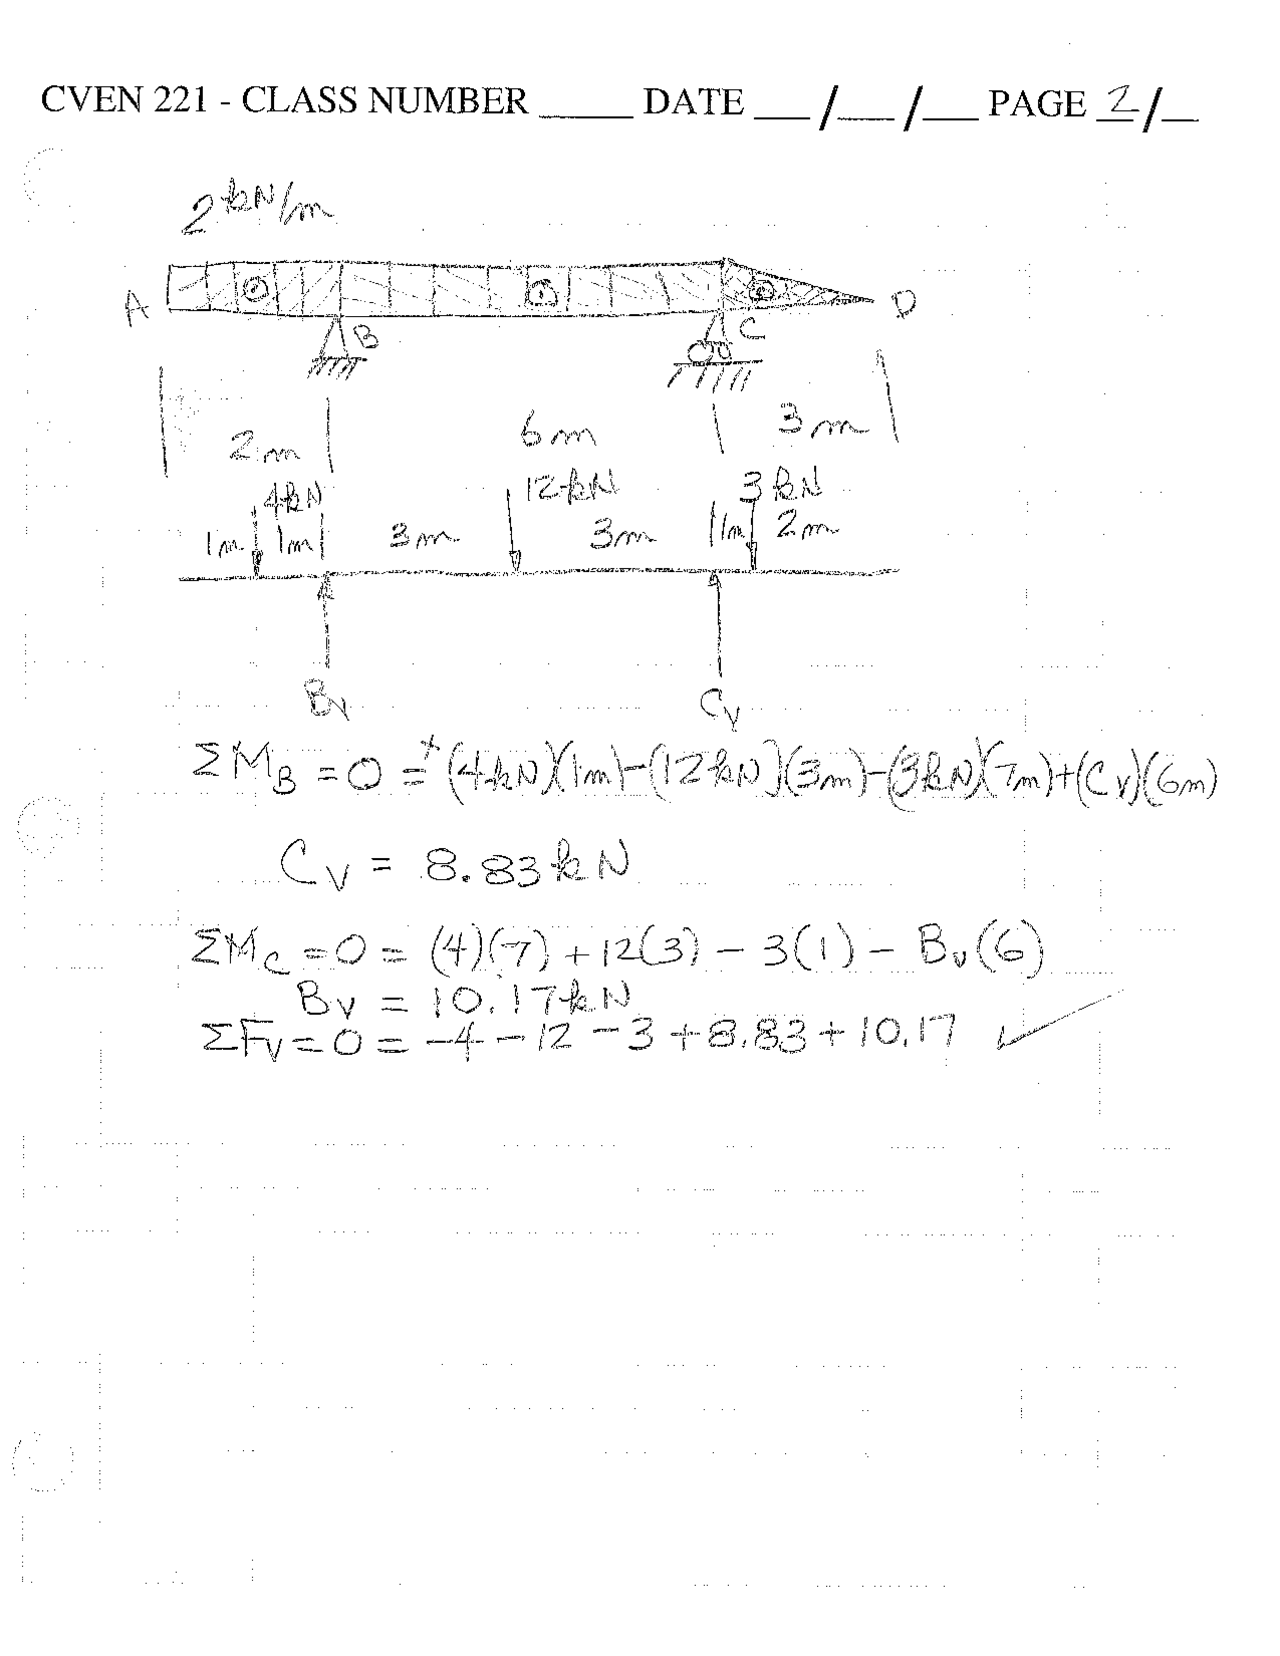 CVEN 221 - CLASS NUMBER _____ DATE ___/___/___ PAGE 2/__
2 kN/m
A B C D
2m 6m 3m
4kN 12kN 3kN
1m 1m 3m 3m 1m 2m
Bv Cv
ΣM_B = 0 = +(4kN)(1m)-(12kN)(3m)-(3kN)(7m)+(Cv)(6m)
Cv = 8.83kN
ΣM_C = 0 = (4)(7) + 12(3) - 3(1) - Bv(6)
Bv = 10.17kN
ΣFv = 0 = -4 - 12 - 3 + 8.83 + 10.17 ✓